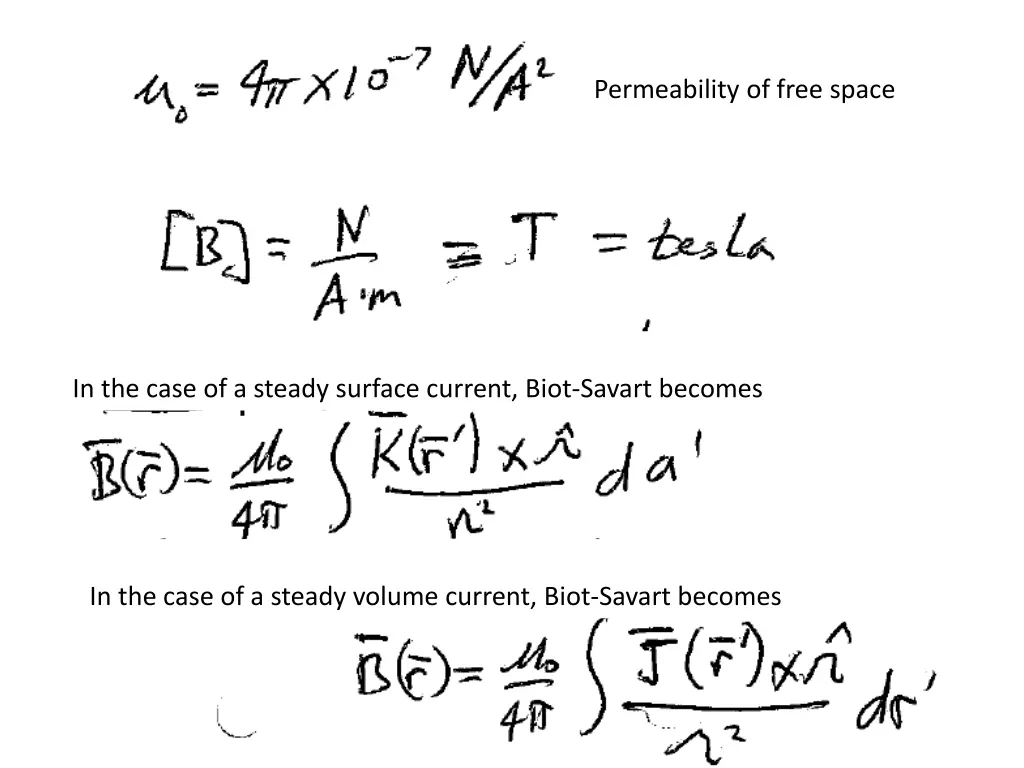 μ₀ = 4π×10⁻⁷ N/A² Permeability of free space
[B] = N/(A·m) ≡ T = tesla
In the case of a steady surface current, Biot-Savart becomes
B̄(r̄) = μ₀/4π ∫ K̄(r̄′) × r̂ / r² da′
In the case of a steady volume current, Biot-Savart becomes
B̄(r̄) = μ₀/4π ∫ J̄(r̄′) × r̂ / r² dτ′